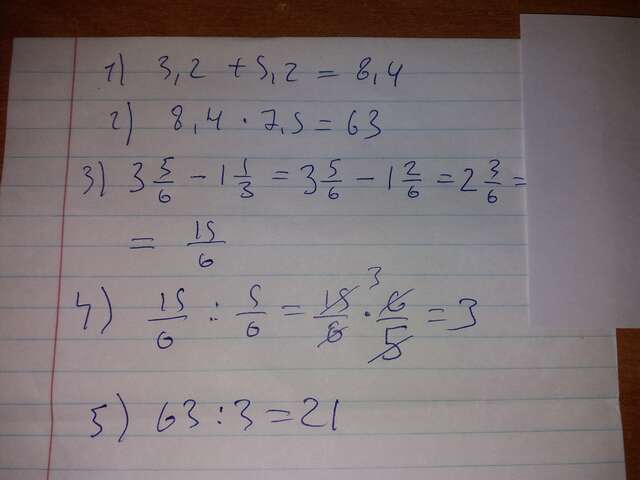 1) 3,2 + 5,2 = 8,4
2) 8,4 · 7,5 = 63
3) 3 5/6 - 1 1/3 = 3 5/6 - 1 2/6 = 2 3/6 =
= 15/6
4) 15/6 : 5/6 = 15/6 · 6/5 = 3
3
5) 63 : 3 = 21